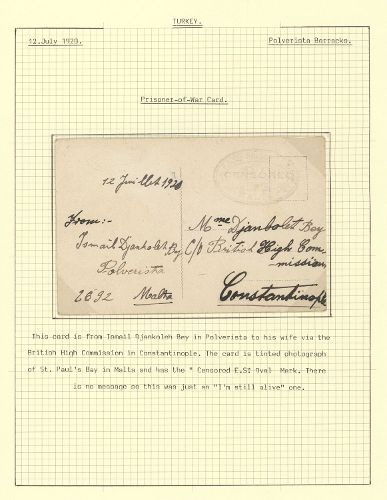 TURKEY.
12.July 1920.
Polverista Barracks.
Prisoner-of-War Card.
CENSORED
12 Juillet 1920
From:-
Ismail Djanbolet Bey
Polverista
2692 Malta
Mme Djanbolet Bey
C/o British High Com-
mission
Constantinople
This card is from Ismail Djankoleh Bey in Polverista to his wife via the
British High Commission in Constantinople. The card is tinted photograph
of St. Paul's Bay in Malta and has the " Censored E.S" Oval Mark. There
is no message so this was just an "I'm still alive" one.